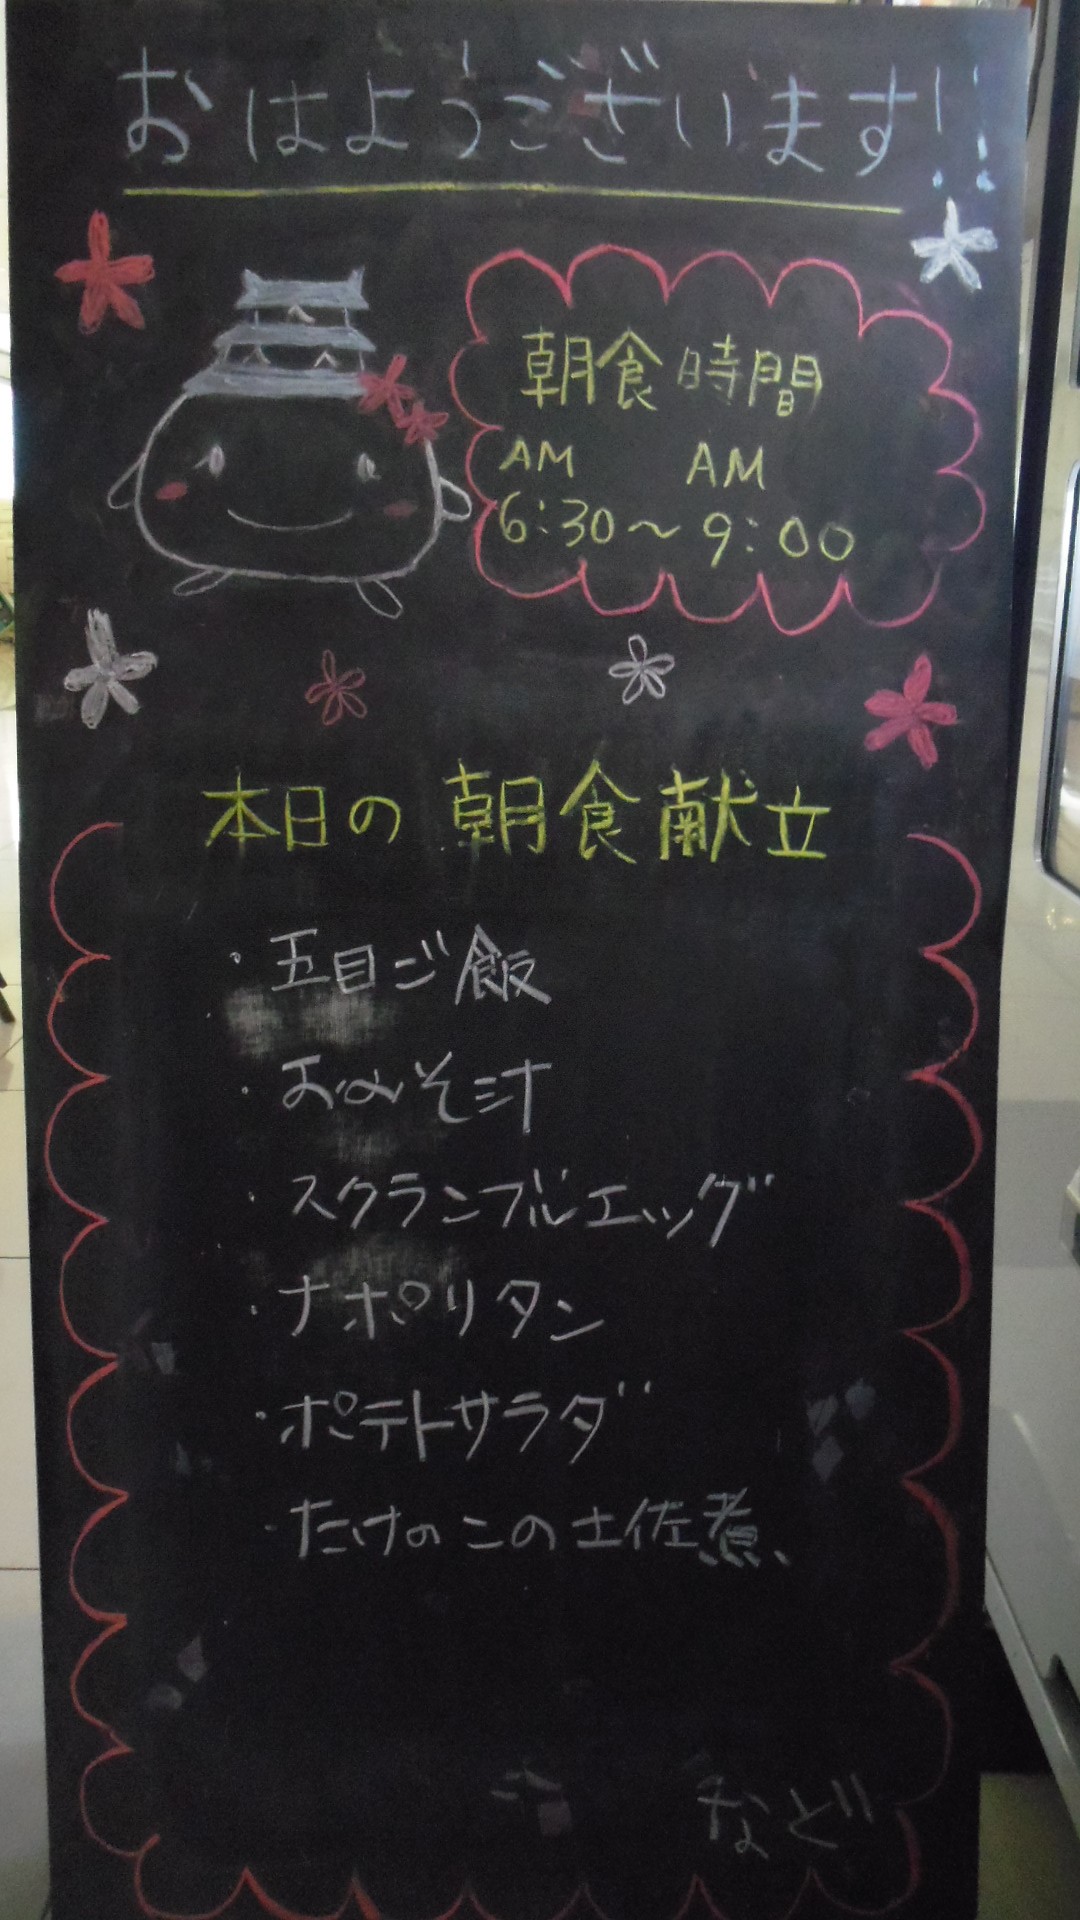 おはようございます!!
朝食時間
AM AM
6:30〜9:00
本日の朝食献立
・五目ご飯
・おみそ汁
・スクランブルエッグ
・ナポリタン
・ポテトサラダ
・たけのこの土佐煮、
など